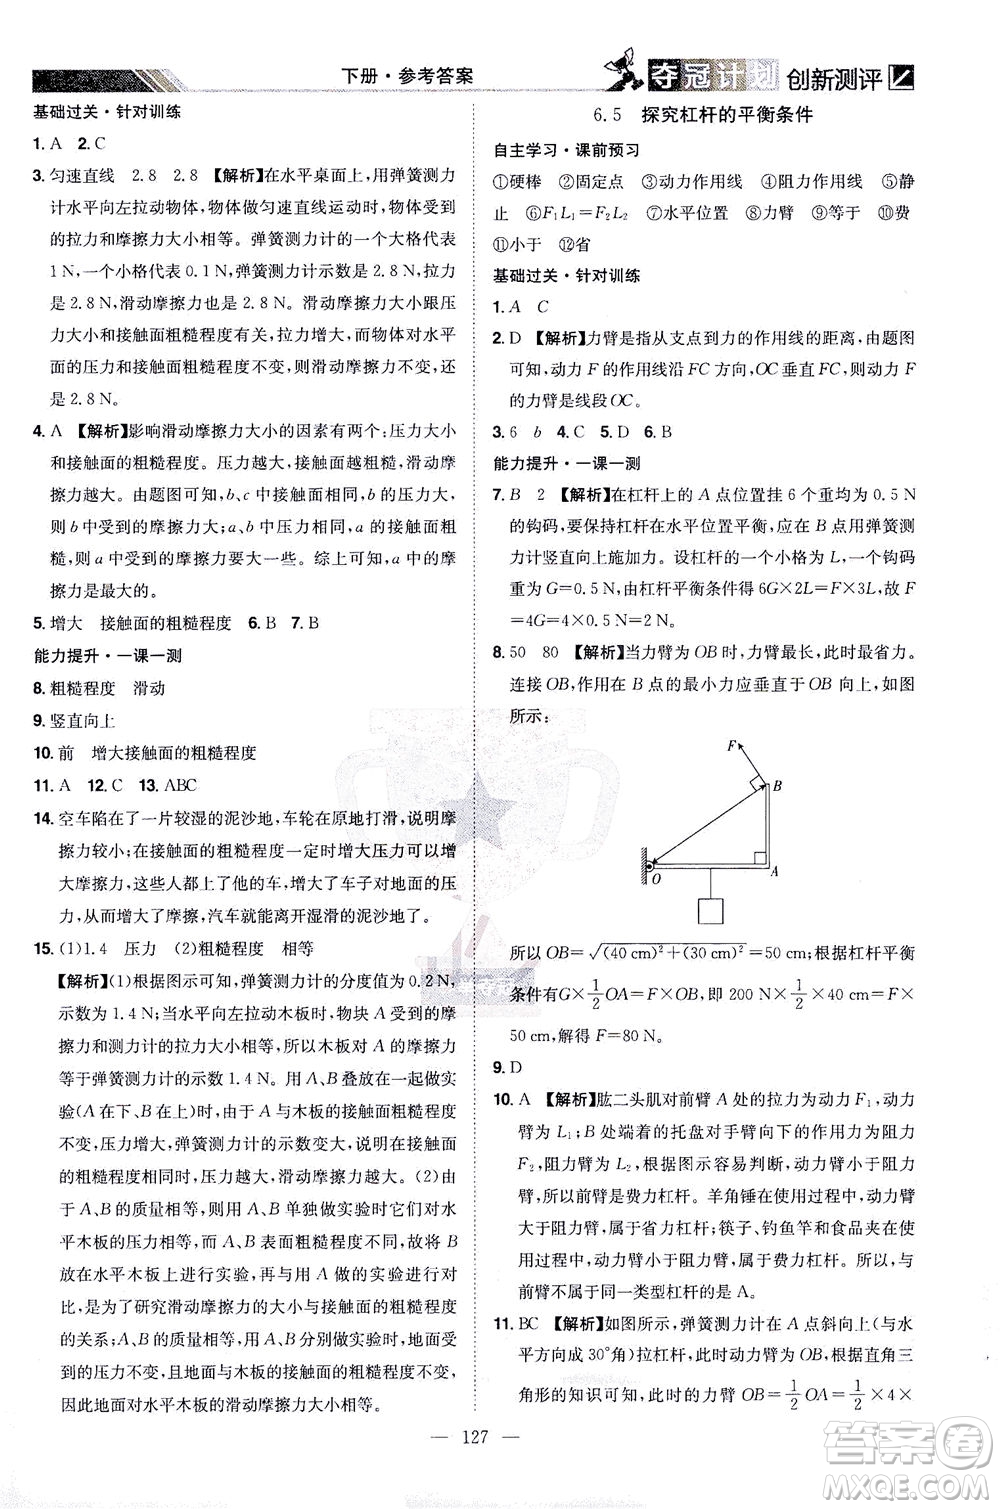 下册·参考答案
夺冠计划 创新测评
基础过关·针对训练
1. A 2. C
3. 匀速直线 2.8 2.8 【解析】在水平桌面上,用弹簧测力
计水平向左拉动物体,物体做匀速直线运动时,物体受到
的拉力和摩擦力大小相等。弹簧测力计的一个大格代表
1 N,一个小格代表 0.1 N,弹簧测力计示数是 2.8 N,拉力
是 2.8 N,滑动摩擦力也是 2.8 N。滑动摩擦力大小跟压
力大小和接触面粗糙程度有关,拉力增大,物体对水平
面的压力和接触面粗糙程度不变,滑动摩擦力不变,还
是 2.8 N。
4. A 【解析】影响滑动摩擦力大小的因素有两个:压力大小
和接触面的粗糙程度。压力越大、接触面越粗糙,滑动摩
擦力越大。由题图可知,b、c 中接触面相同,b 中压力大,
则 b 中受到的摩擦力大;a、b 中压力相同,a 中接触面粗
糙,则 a 中受到的摩擦力要大一些。综上可知,a 中的摩
擦力是最大的。
5. 增大 接触面的粗糙程度 6. B 7. B
能力提升·一课一测
8. 粗糙程度 滑动
9. 竖直向上
10. 前 增大接触面的粗糙程度
11. A 12. C 13. ABC
14. 空车陷在了一片较湿的泥沙地,车轮在原地打滑,说明摩
擦力较小;在接触面的粗糙程度一定时增大压力可以增
大摩擦力,这些人都爬到他的车,是增大了车子对地面的压
力,从而增大了摩擦,汽车就能离开湿滑的泥沙地了。
15. (1)1.4 压力 (2)粗糙程度 相等
【解析】(1)根据图示可知,弹簧测力计的分度值是 0.2 N,
示数是 1.4 N;当水平向左拉动木板时,物块 A 受到的摩
擦力和测力计的拉力大小相等,所以木板对 A 的摩擦力
等于弹簧测力计的示数 1.4 N。用 A、B 叠放在一起做实
验(A 在下、B 在上),由于 A 与木板的接触面粗糙程度
不变,压力增大,弹簧测力计的示数变大,说明在接触面
粗糙程度相同时,压力越大,滑动摩擦力越大。(2)A、B
的质量相同,用 A、B 单独做实验时,由于它们对水
平木板的压力相等,但其表面粗糙程度不同,故用 B
放在水平木板上进行实验,与用 A 做的实验进行对
比,是为了研究滑动摩擦力的大小与接触面粗糙程度
的关系;A、B 的质量相等,A、B 分别做实验时,地面受到
的压力不变,而且地面与木板的接触面粗糙程度不变,
因此地面对水平木板的滑动摩擦力大小相等。
6.5 探究杠杆的平衡条件
自主学习·课前预习
①硬棒 ②固定点 ③动力作用线 ④阻力作用线 ⑤静
止 ⑥F₁L₁=F₂L₂ ⑦水平位置 ⑧力臂 ⑨等于 ⑩费
⑪小于 ⑫省
基础过关·针对训练
1. A C
2. D 【解析】力臂是指从支点到力的作用线的距离,由题图
可知,动力 F 的作用线沿 FC 方向,OC 垂直 FC,故动力 F
的力臂是线段 OC。
3. 6 b 4. C 5. D 6. B
能力提升·一课一测
7. B 2 【解析】在杠杆上的 A 点位置挂 6 个重均为 0.5 N
的钩码,要保持杠杆在水平位置平衡,应在 B 点用弹簧测
力计竖直向上施加力。设杠杆的一个小格为 L,一个钩码
重为 G=0.5 N,由杠杆平衡条件得 6G×2L=F×3L,故 F
=4G=4×0.5 N=2 N。
8. 50 80 【解析】当力臂为 OB 时,力臂最长,此时最省力。
连接 OB,作用在 B 点的最小力应垂直于 OB 向上,如图
所示:
F
B
O
A
所以 OB=√(40 cm)²+(30 cm)²=50 cm;根据杠杆平衡
条件有 G×1/2 OA=F×OB,即 200 N×1/2×40 cm=F×
50 cm,解得 F=80 N。
9. D
10. A 【解析】肱二头肌对前臂 A 处的拉力为动力 F₁,动力
臂为 L₁;B 处端着的托盘对手臂向下的作用力为阻力
F₂,阻力臂为 L₂,根据图示容易判断,动力臂小于阻力
臂,所以前臂属于费力杠杆。羊角锤在使用过程中,动力臂
大于阻力臂,属于省力杠杆;筷子、钓鱼竿和食品夹在
使用过程中,动力臂小于阻力臂,属于费力杠杆。所以,与
前臂不同一类型杠杆的是 A。
11. BC 【解析】如图所示,弹簧测力计在 A 点斜向上(与水
平方向成 30°角)拉杠杆,此时的动力臂为 OB,由直角三
角形的知识可知,此时的力臂 OB=1/2 OA=1/2×4×
127
答案圈
MXQE.COM